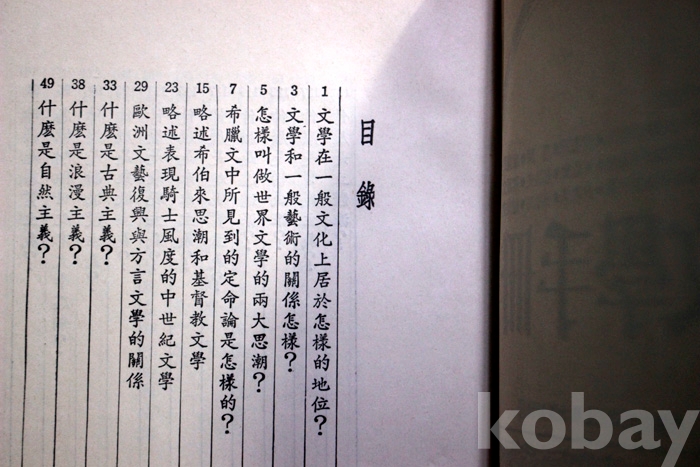 目錄
1 文學在一般文化上居於怎樣的地位?
3 文學和一般藝術的關係怎樣?
5 怎樣叫做世界文學的兩大思潮?
7 希臘文中所見到的定命論是怎樣的?
15 略述希伯來思潮和基督教文學
23 略述表現騎士風度的中世紀文學
29 歐洲文藝復興與方言文學的關係
33 什麼是古典主義?
38 什麼是浪漫主義?
49 什麼是自然主義?
kobay